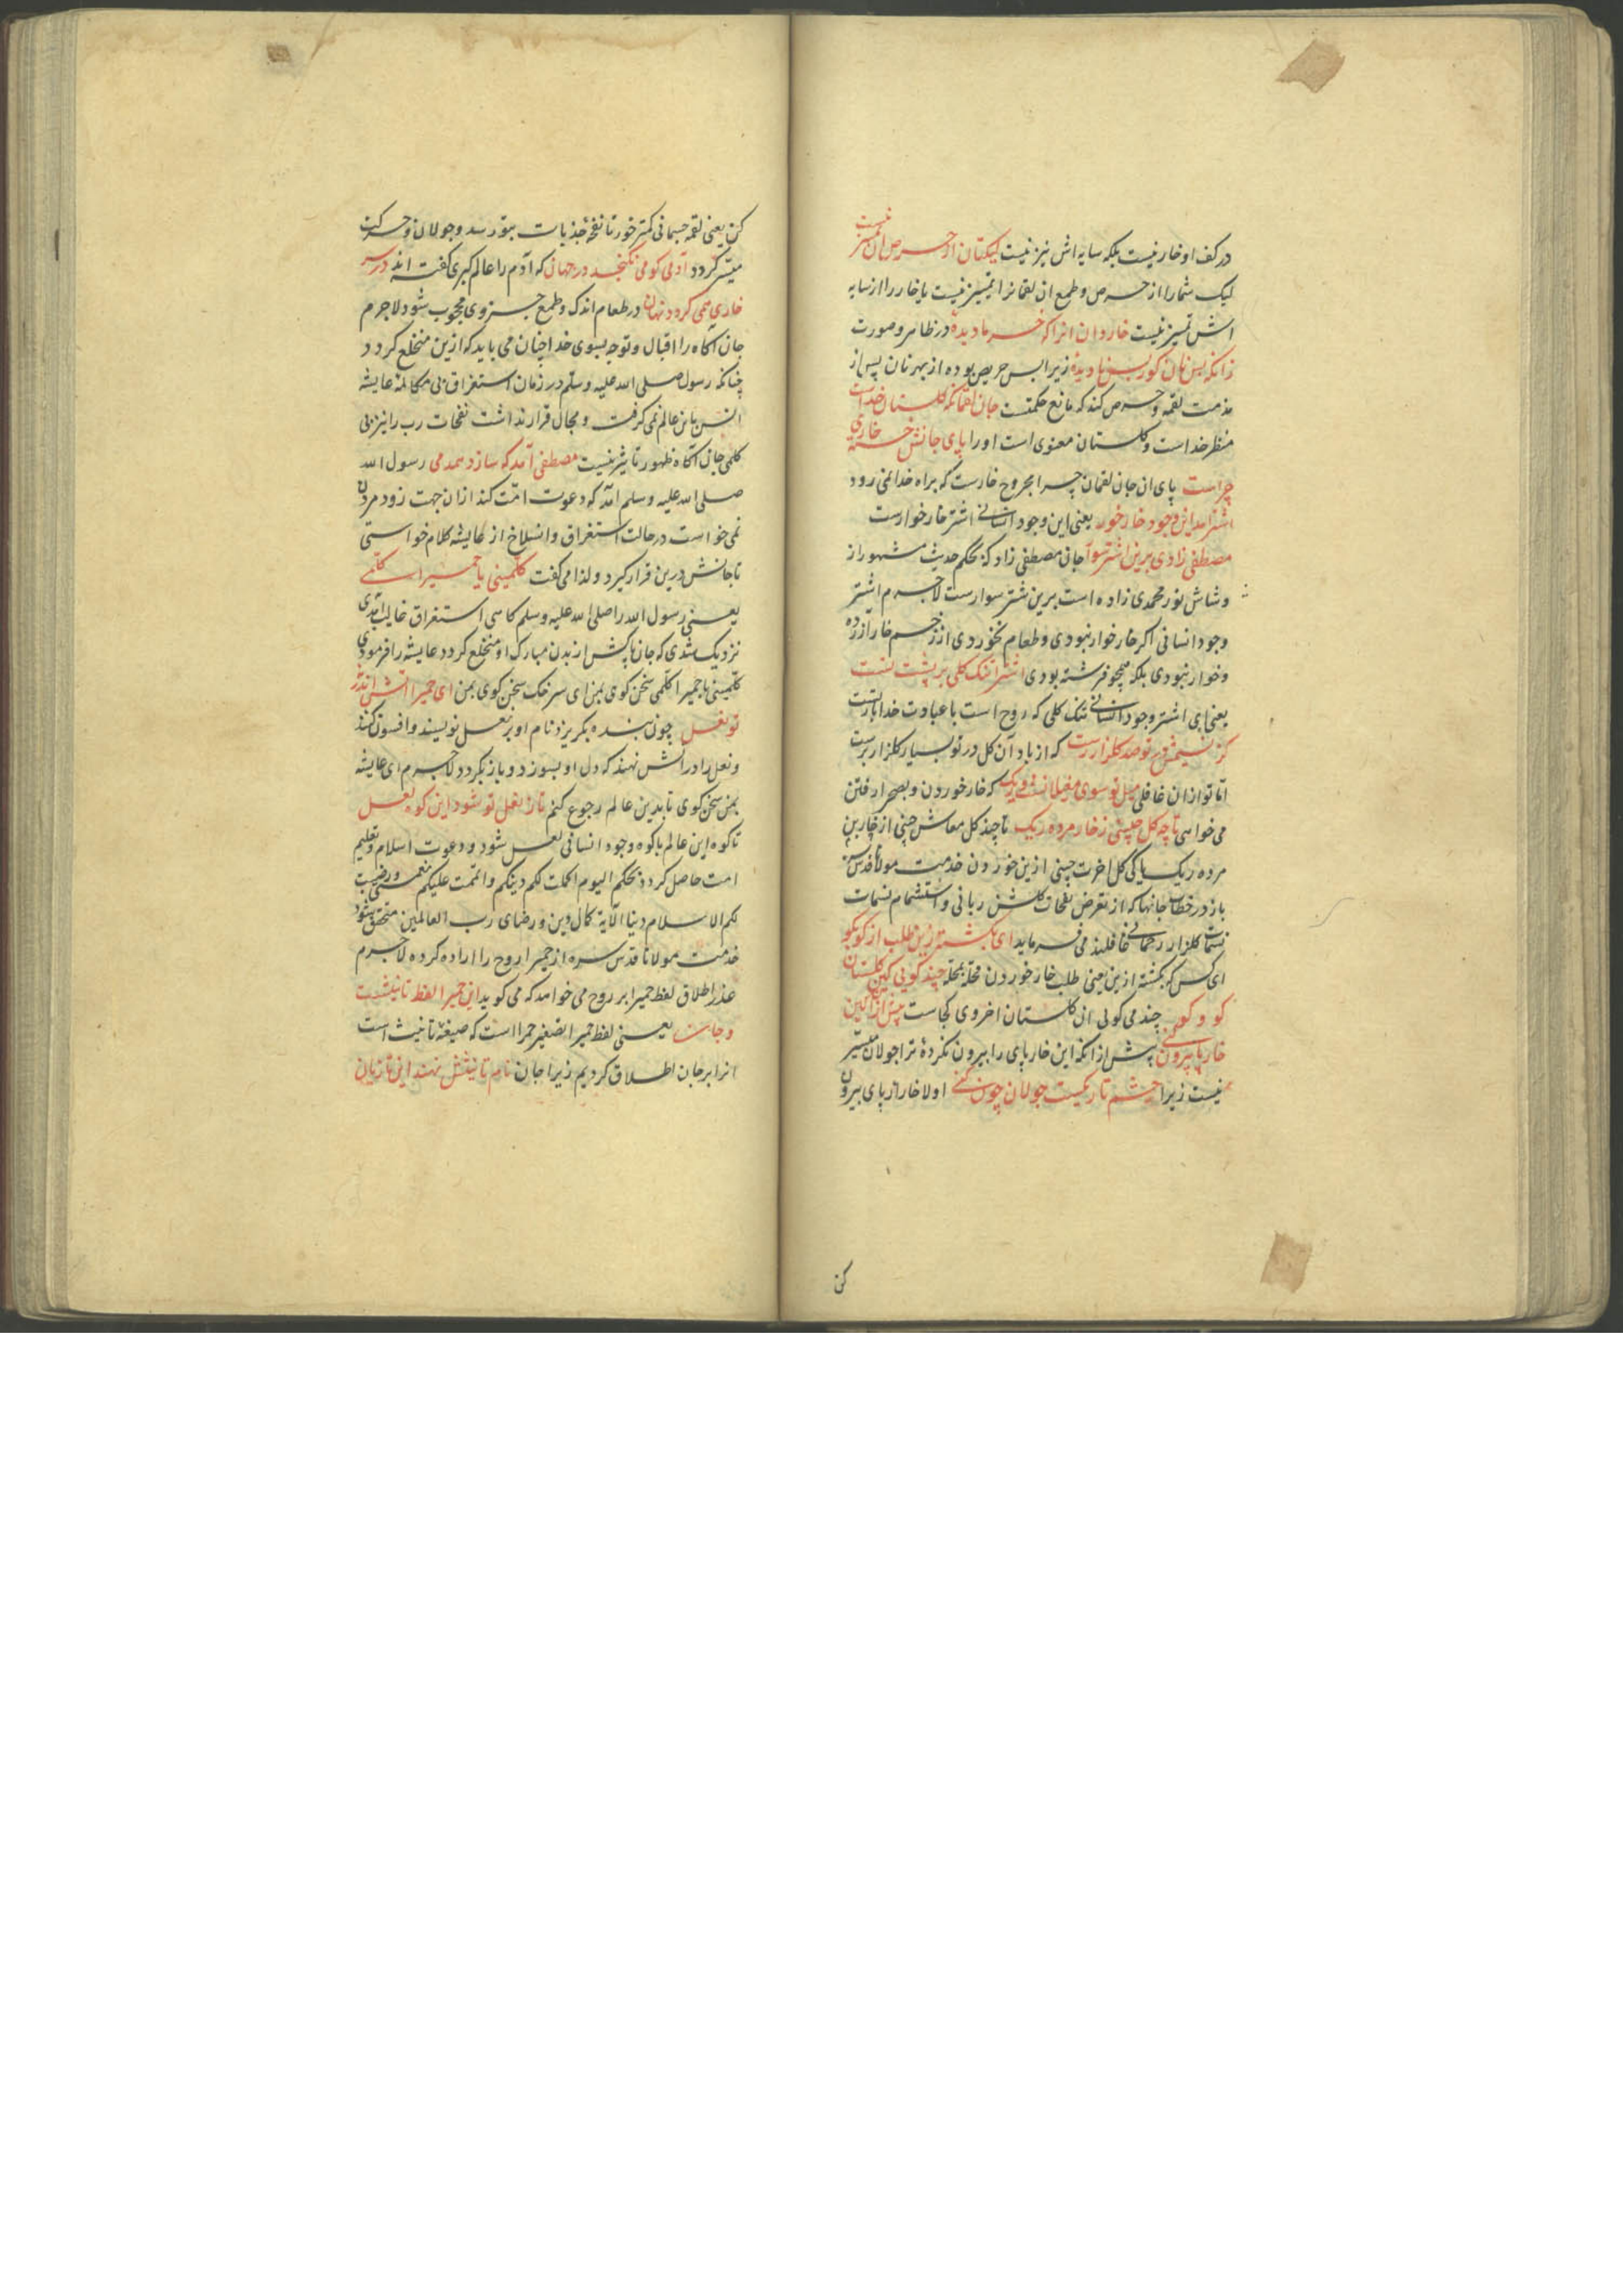 در کف او خار نیست بلکه سایه اش نیز نیست لیکتان از حرص آن تمییز نیست
لیک شما را از حرص و طمع ان لقمانرا تمییز نیست یا خار را از سایه
اش تمییز نیست خار دان انرا که خرما دیدهٔ در ظاهر و صورت
زانکه بس نان کور و بس نادیدهٔ زیرا بس حریص بوده از بهر نان پس از
مذمت لقمه و حرص کند که مانع حکمتست جان لقمانکه گلستان خداست
منظر خداست و گلستان معنوی است او را پای جانش خسته خاری
چراست پای ان جان لقمان چرا مجروح خارست که براه خدا نمی رود
اشتر امد این وجود خار خوار یعنی این وجود انسانی اشتر خار خوارست
مصطفی زادی برین اشتر سوار جان مصطفی زاد که بحکم حدیث مشهور از
وشاش نور محمدی زاده است برین شتر سوارست لاجرم اشتر
وجود انسانی اکر خار خوار نبودی و طعام نخوردی از زخم خار ازرده
و خوار نبودی بلکه همچو فرشته بودی اشترا تنک کلی بر پشت تست
یعنی ای اشتر وجود انسانی تنک کلی که روح است با عبادت خدا بار تست
کز نسیمش در تو صد کلزار رست که از باد آن کل در تو بسیار کلزار برست
اما تو از ان غافلی میل تو سوی مغیلانست و ریک که خار خوردن و بصحرا رفتن
می خواهی تا چه کل چینی ز خار مرده ریک تا چند کل معاش چنی از خار بن
مرده ریک یا کی کل اخرت چینی ازین خوردن خدمت مولانا قدس سره
باز در خطاب جانها که از تعرض نفحات کلشن ربانی و استشمام نسمات
نسمات کلزار رحمانی غافلند می فرماید ای بکشته زین طلب از کو بکو
ای کس که بکشته ازین یعنی طلب خار خوردن محله بمحله چند کویی کین کلستان
کو و کو چند می کولی ان کلستان اخروی کجاست پیش ازان کین
خار پا بیرون کنی پیش از انکه این خار پای را بیرون نکردهٔ ترا جولان میسر
نیست زیرا چشم تاریکست جولان چون کنی اولا خار از پای بیرون
کن
کن یعنی لقمه جسمانی کمتر خور تا نفحه جذبات بتو رسد و جولان و حرکت
میسر کردد آدمی کو می نکنجد در جهان که آدم را عالم کبری کفته اند در سر
خاری همی کردد نهان در طعام اندک و طمع جزوی محجوب شود لاجرم
جان اکاه را اقبال و توجه بسوی خدا چنان می باید که ازین منخلع کردد
چنانکه رسول صلی الله علیه وسلم در زمان استغراق بی مکالمه عایشه
انس باین عالم نمی کرفت و مجال قرار نداشت نفحات رب را نیز بی
کلمی جان اکاه ظهور تاثیر نیست مصطفی آمد که سازد همدمی رسول الله
صلی الله علیه وسلم آمد که دعوت امت کند از ان جهت زود مردن
نمی خواست در حالت استغراق و انسلاخ از عایشه کلام خواستی
تا جانش درین قرار کیرد و لذا می کفت کلمینی یا حمیرا کلمی
یعنی رسول الله را صلی الله علیه وسلم کاهی استغراق غالب آمدی
نزدیک شدی که جان پاکش از بدن مبارک او منخلع کردد عایشه را فرمودی
کلمینی یا حمیرا کلمی سخن کوی بمن ای سرخک سخن کوی بمن ای حمیرا آتش اندر نه
تو نعل چون بنده بکریزد نام او بر نعل نویسند و افسون کنند
و نعل را در آتش نهند که دل او بسوزد و باز بکردد لاجرم ای عایشه
بمن سخن کوی تا بدین عالم رجوع کنم تا ز نعل تو شود این کوه لعل
تا کوه این عالم یا کوه وجود انسانی لعل شود و دعوت اسلام و تعلیم
امت حاصل کردد بحکم الیوم اکملت لکم دینکم و اتممت علیکم نعمتی و رضیت
لکم الاسلام دینا الآیة کمال دین و رضای رب العالمین متحقق شود
خدمت مولانا قدس سره از حمیرا روح را اراده کرده لاجرم
عذر اطلاق لفظ حمیرا بر روح می خواهد که می کوید این حمیرا لفظ تانیثست
و جان یعنی لفظ حمیرا تصغیر حمرا است که صیغهٔ تانیث است
انرا بر جان اطلاق کردیم زیرا جان نام تانیثش نهند این تازیان